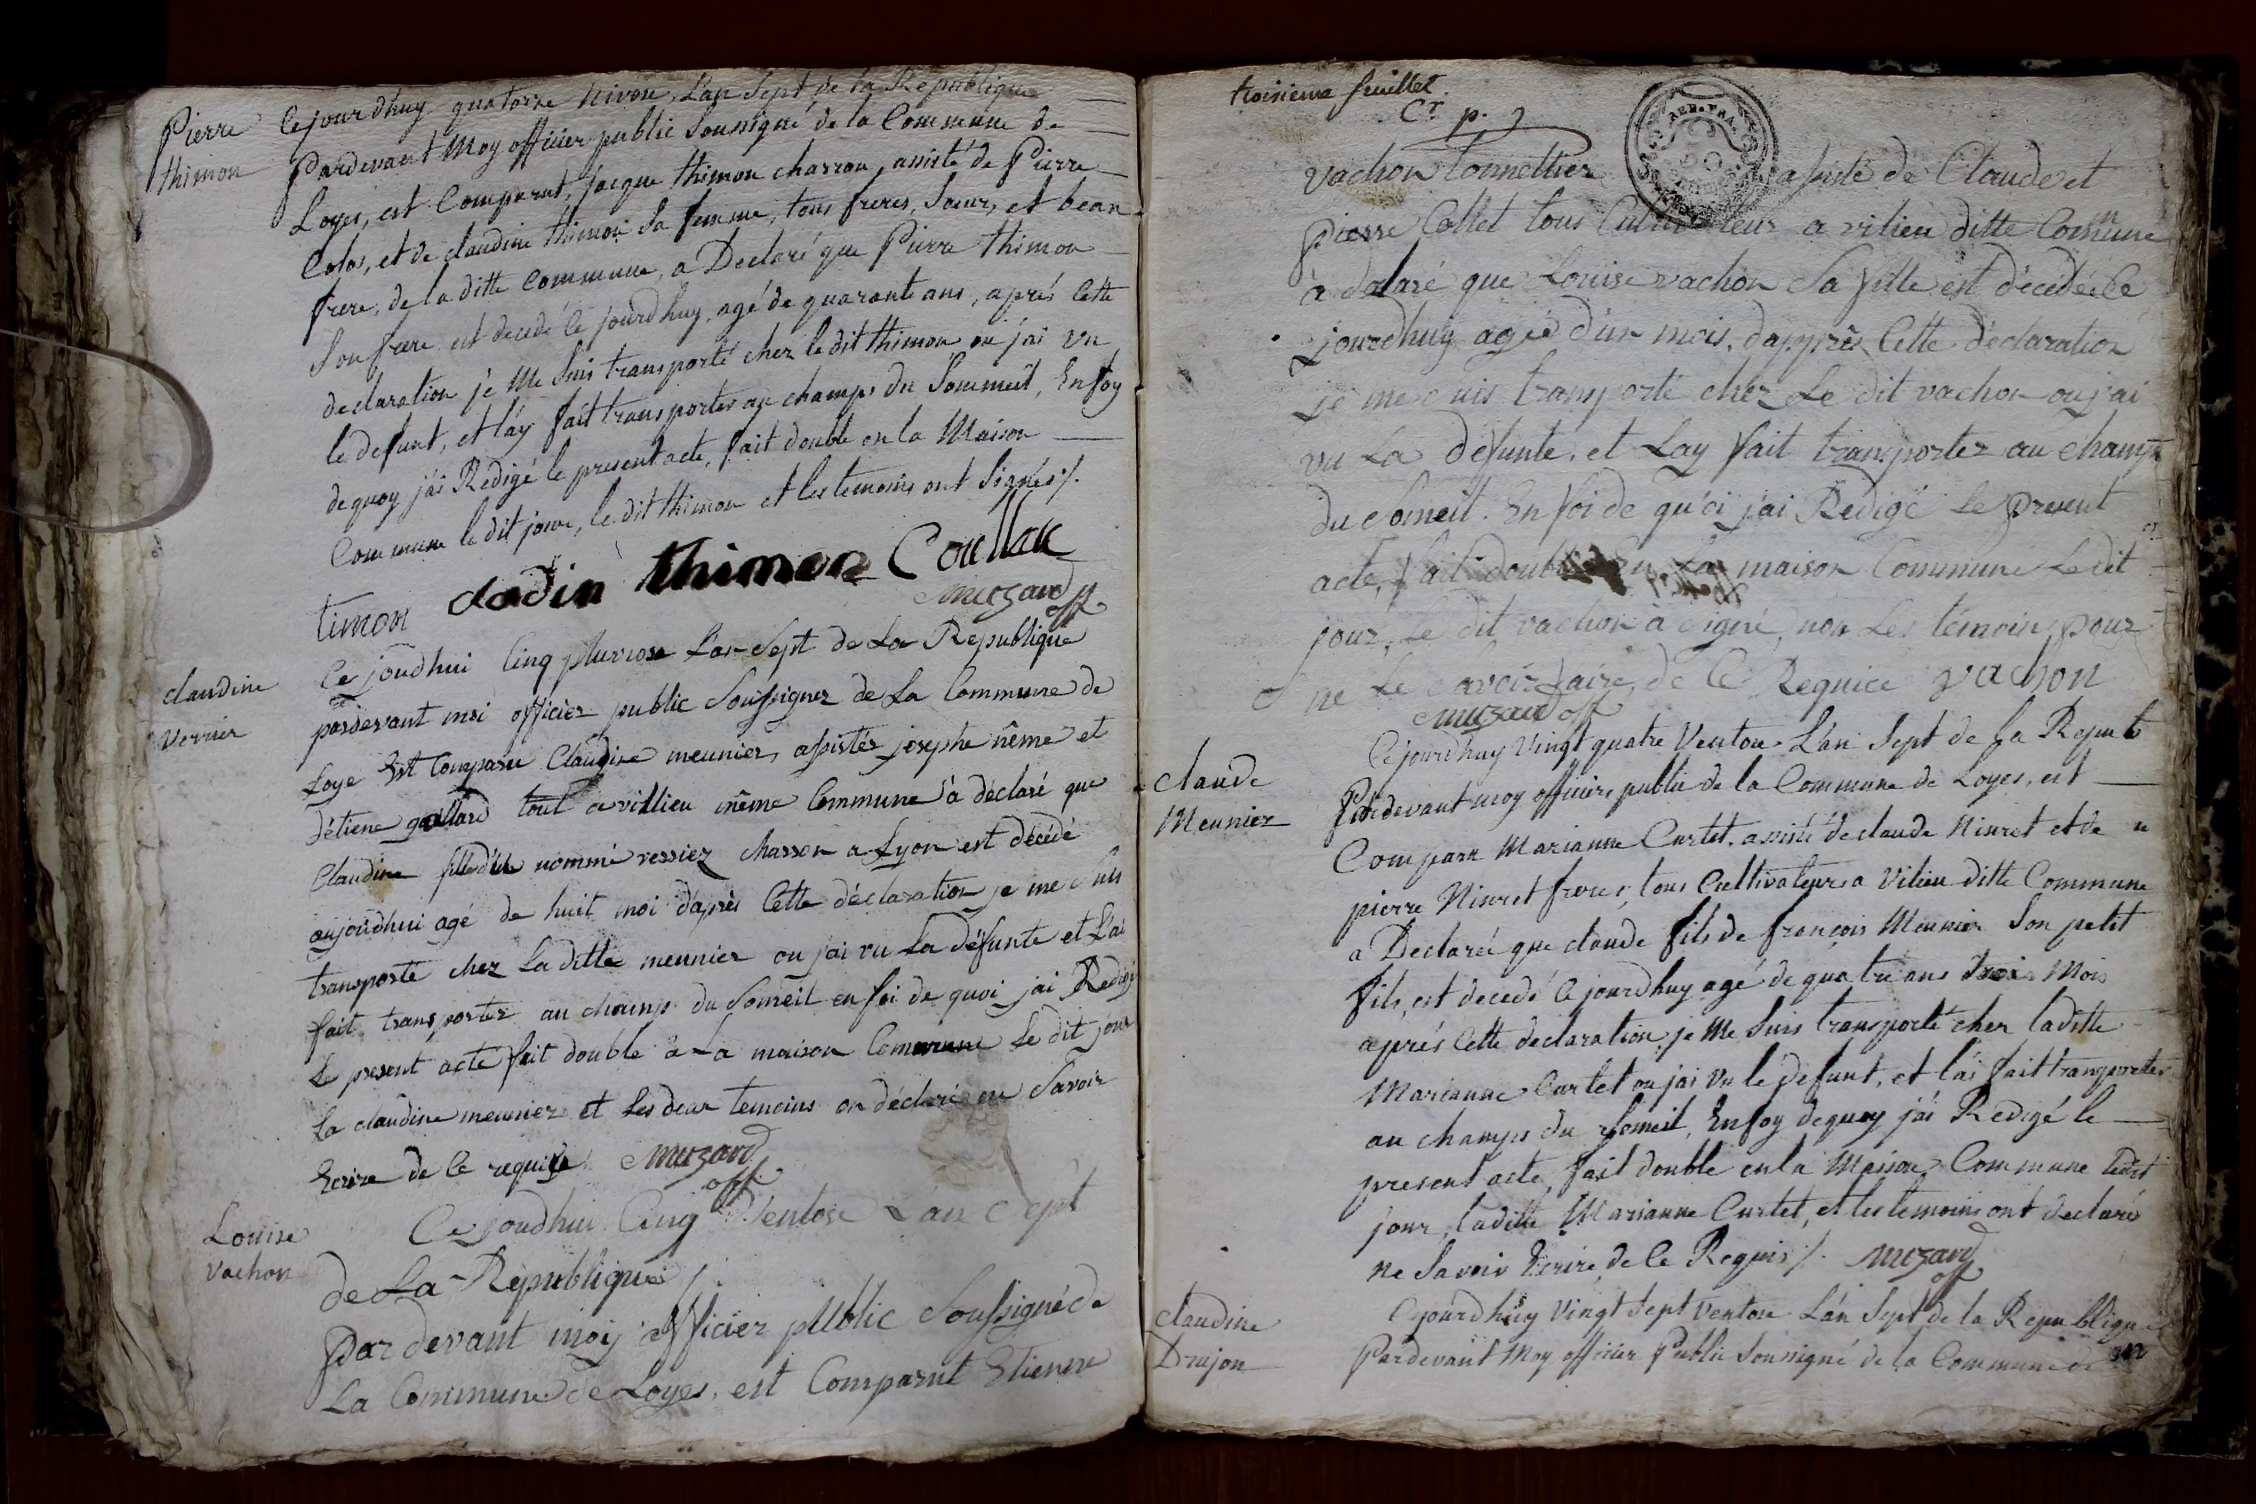 Pierre
thimon
Cejourdhuy quatorze Nivose, L'an Sept de la Republique
Pardevant Moy officier public Soussigné de la Commune de
Loyes, est Comparut, jacque thimon charron, assisté de Pierre
Colas, et de claudine thimon Sa femme, tous freres, Soeurs, et beau
frere, de la ditte Commune, a Declaré que Pierre thimon
Son frere est decedé Ce jourdhuy, agé de quarante ans, aprés Cette
declaration je Me Suis transporté chez le dit thimon ou j'ai vu
le defunt, et l'ay fait transporter au champs du Sommeil, En foy
de quoy j'ai Redigé le present acte, fait double en la Maison
Commune le dit jour, le dit thimon et les temoins ont Signés ./.
timon cladin thimon Coullau
Muzard
off.
claudine
vernier
Ce joudhui Cinq pluviose L'an Sept de La Republique
pardevant moi officier public Soussignez de La Commune de
Loye Est Comparu Claudine meunier, assistéz josephe nême et
détiene gallard tout a villieu même Commune à déclaré que
Claudine filled'un nommé ressiez chasson a Lyon est décédé
aujourdhui agé de huit moi d'après Cette déclaration je me suis
transporté chez La ditte meunier ou j'ai vu La défunte et L'ai
fait transporter au champs du Someil en foi de quoi j'ai Redigé
Le present acte fait double a La maison Commune Le dit jour
La claudine meunier et Les deux temoins on déclaré ne Savoir
Ecrire de Ce requise Muzard
off.
Louise
vachon
Ce joudhui Cinq Ventose L'an Sept
de La République ./.
Par devant moy officier public Soussigné de
La Commune de Loyes, est Comparut Etienne
troisieme feuillet.
Ct p.
REP. FRA.
vachon tonnellier assisté de Claude et
pierre Collet tous Cultivateur a vilieu ditte Commune
à dalaré que Louise vachon Sa fille est décédée Ce
jourdhuy agée d'un mois. dapprès Cette déclaration
je me suis transporté chez Le dit vachon ou j'ai
vu La défunte. et Lay fait transporter au champ
du Someil. En foi de qu'oi j'ai Redigé Le present
acte, fait double En La maison Commune Le dit
jour, Le dit vachon à signé, non Les témoins pour
ne Le Savoir faire, de Ce Requice vachon
Muzard off
claude
Meunier
Cejourdhuy Vingt quatre Ventose L'an Sept de la Repub
Pardevant moy officier public de la Commune de Loyes, est
Comparu Marianne Curtet, assisté de claude Nivret et de
pierre Nivret freres, tous Cultivateurs a Vilieu ditte Commune
a Declaréé que claude fils de françois Meunier Son petit
fils, est decedé Ce jourdhuy agé de quatre ans trois Mois
aprés Cette declaration, je Me Suis transporté chez laditte
Marianne Curtet ou j'ai Vu le defunt, et l'ai fait transporter
au champs du Someil, En foy de quoy j'ai Redigé le
present acte, fait double en la Maison Commune ledit
jour, laditte Marianne Curtet, et les temoins ont declaré
ne Savoir Ecrire, de Ce Requis ./. Muzard
off
claudine
Drujon
Cejourdhuy Vingt Sept Ventose L'an Sept de la Republique
Pardevant Moy officier Public Soussigné de la Commune de